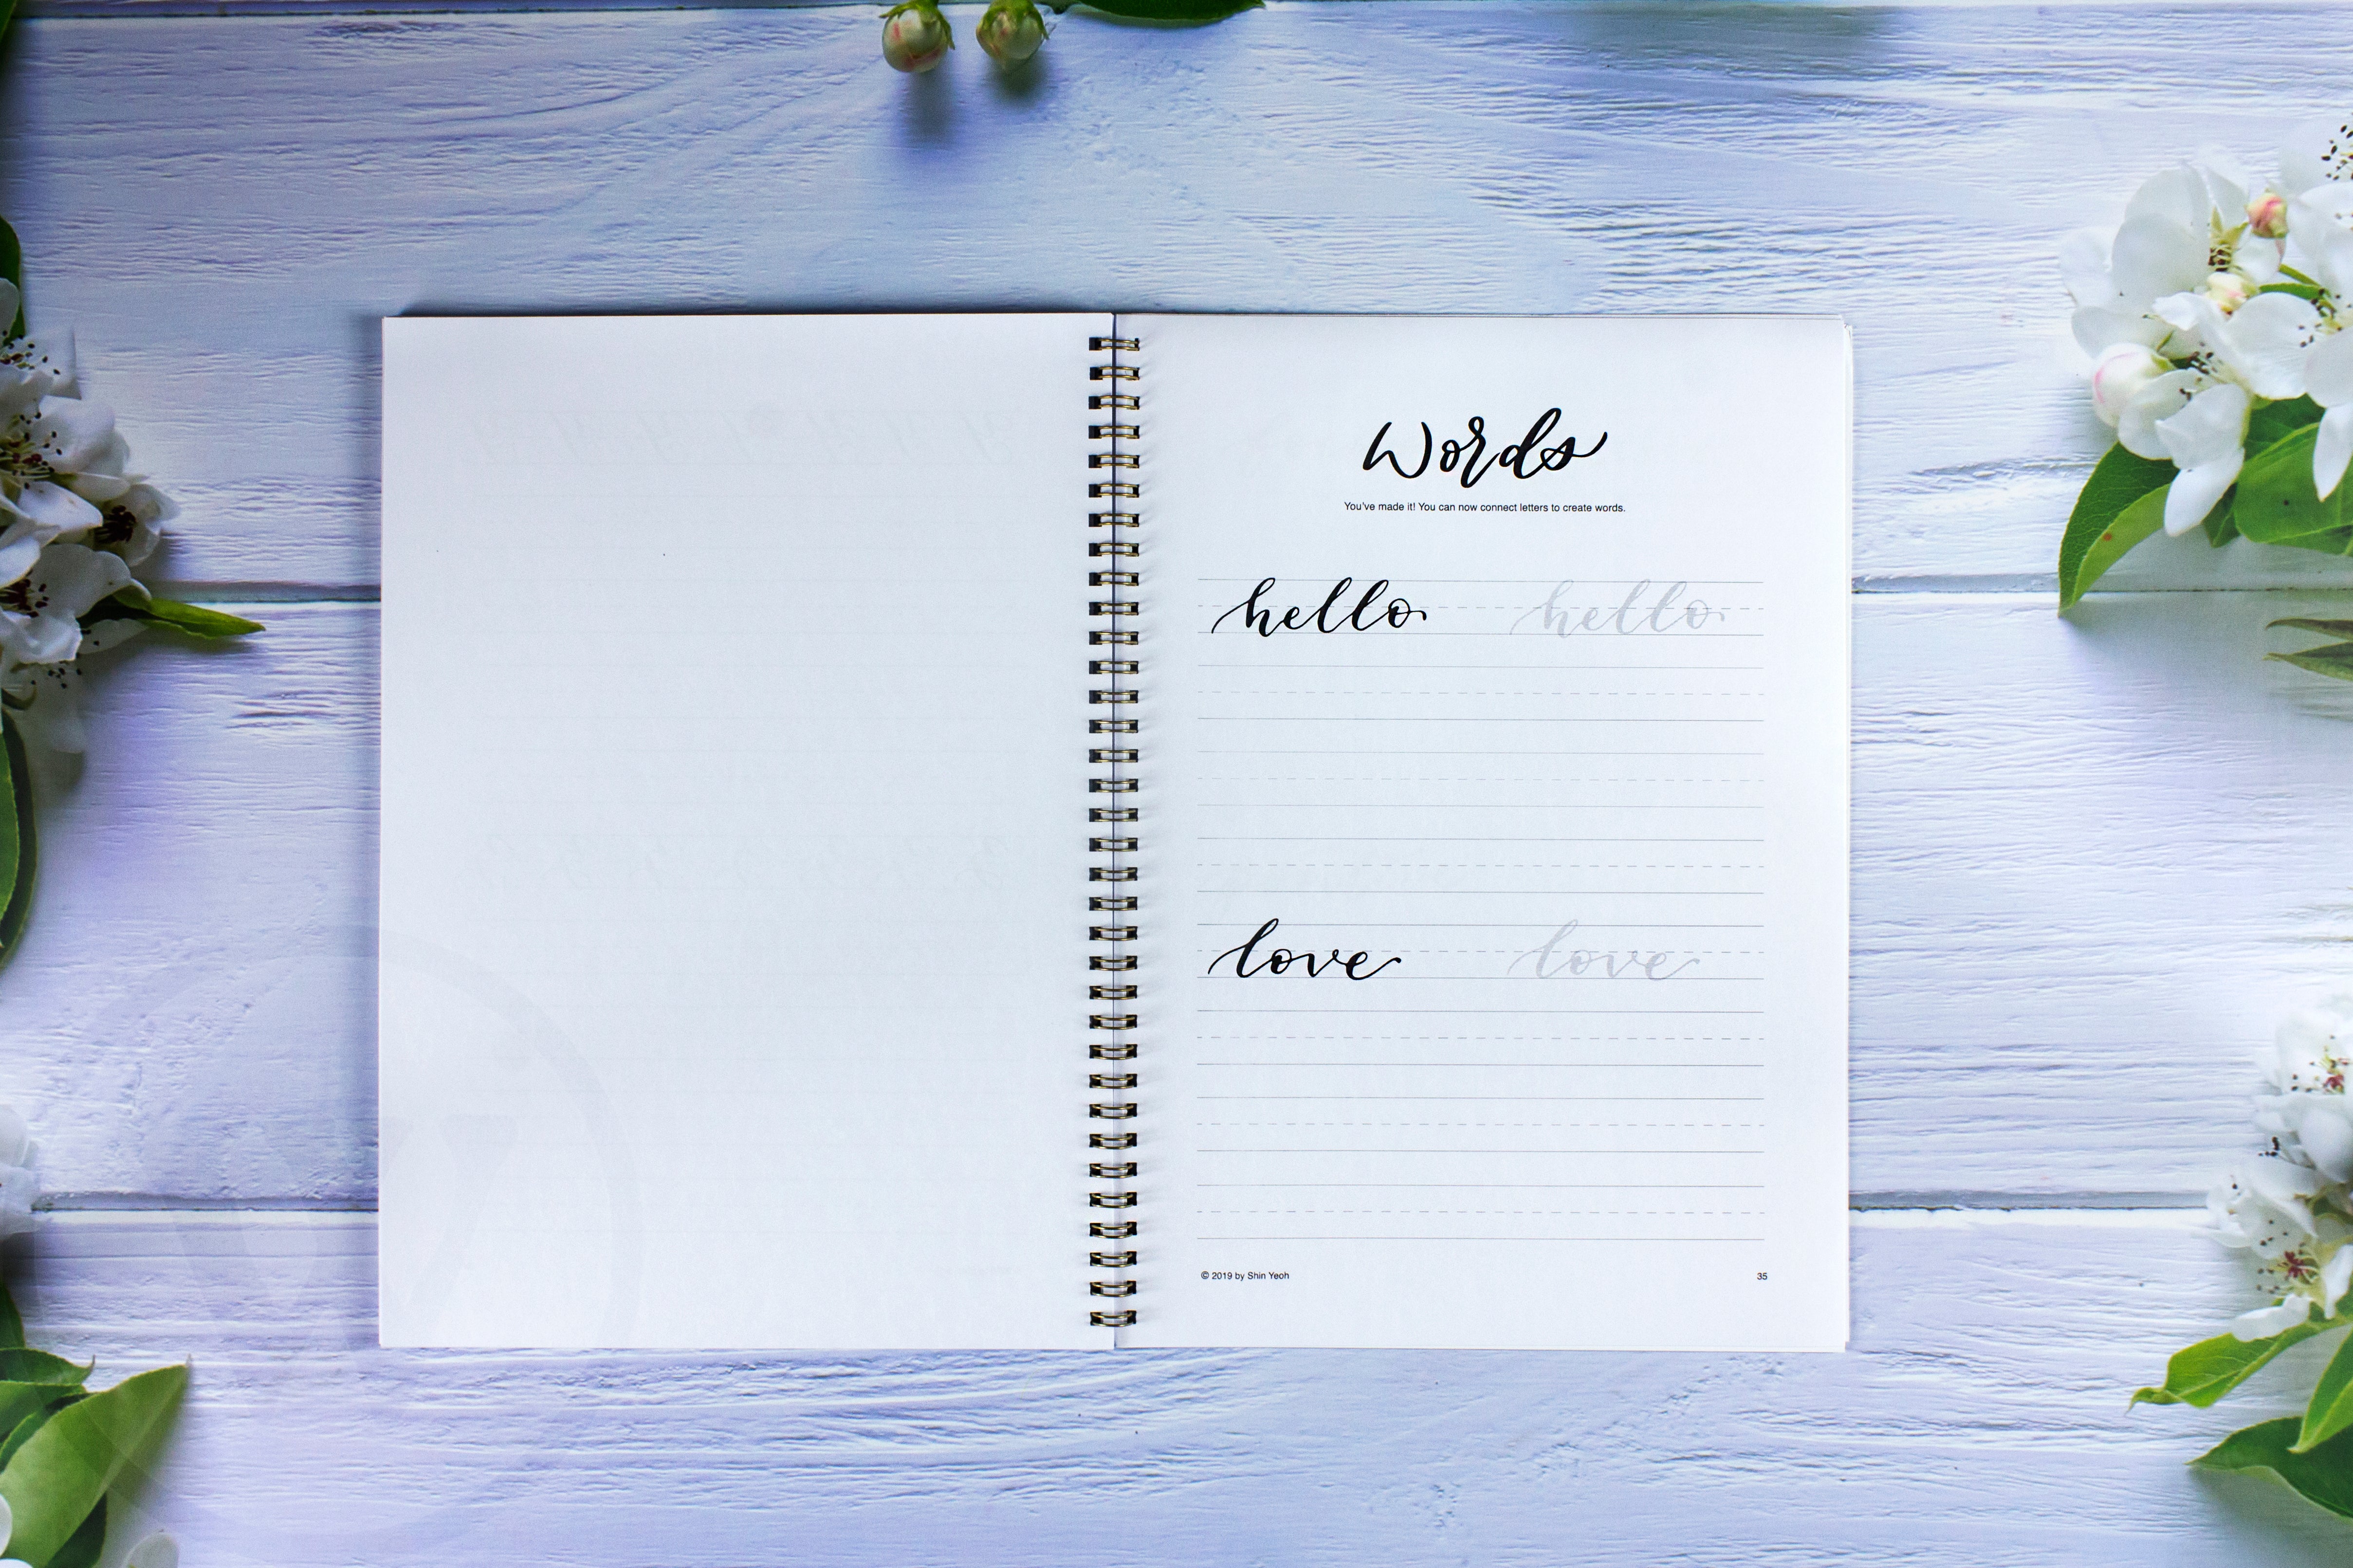 Words
You've made it! You can now connect letters to create words.
hello hello
love love
© 2019 by Shin Yeoh 35